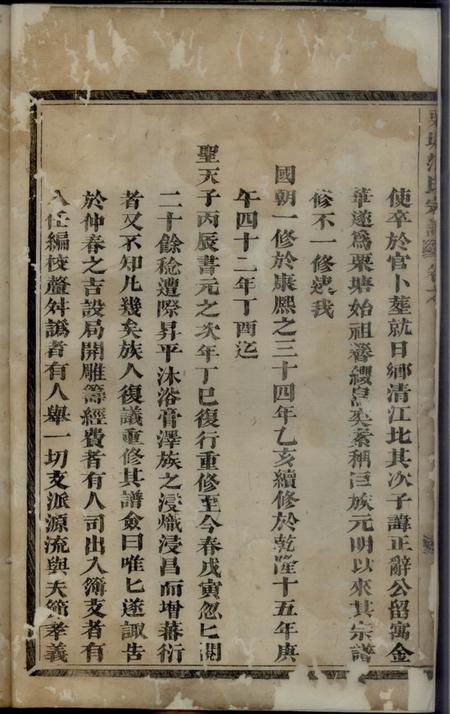 使卒於官卜塟就日鄉清江比其次子諱正辭公留寓金
華遂為栗塘始祖簪纓奕稱巨族元明以來其宗譜
修不一修逮我
國朝一修於康熙之三十四年乙亥續修於乾隆十五年庚
午四十二年丁酉迄
聖天子丙辰書元之次年丁巳復行重修至今春戊寅忽已閱
二十餘稔遭際昇平沐浴膏澤族之浸熾浸昌而增蕃衍
者又不知凡幾矣族人復議重修其譜僉曰唯匕遂諏吉
於仲春之吉設局開雕籌經費者有人司出入簿支者有
人任編校釐舛譌者有人舉一切支派源流與夫節孝義